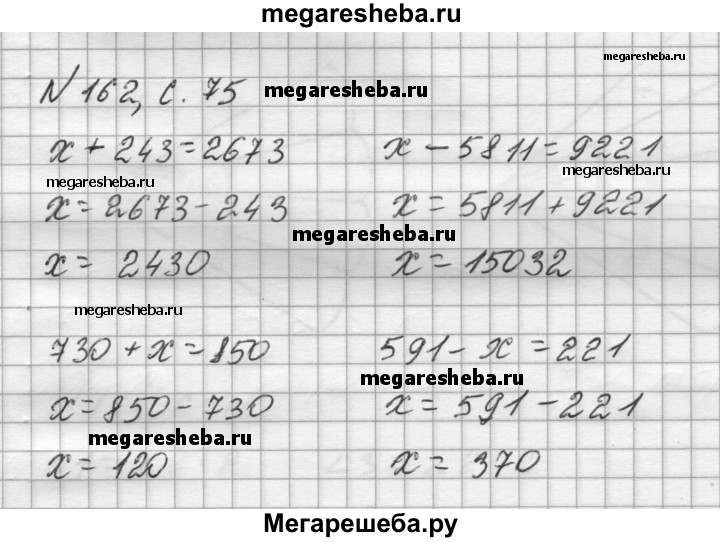 megaresheba.ru
megaresheba.ru
№ 162, с. 75 megaresheba.ru
x + 243 = 2673 x - 5811 = 9221
megaresheba.ru megaresheba.ru
x = 2673 - 243 x = 5811 + 9221
megaresheba.ru
x = 2430 x = 15032
megaresheba.ru
730 + x = 850 591 - x = 221
megaresheba.ru
x = 850 - 730 x = 591 - 221
megaresheba.ru
x = 120 x = 370
Мегарешеба.ру